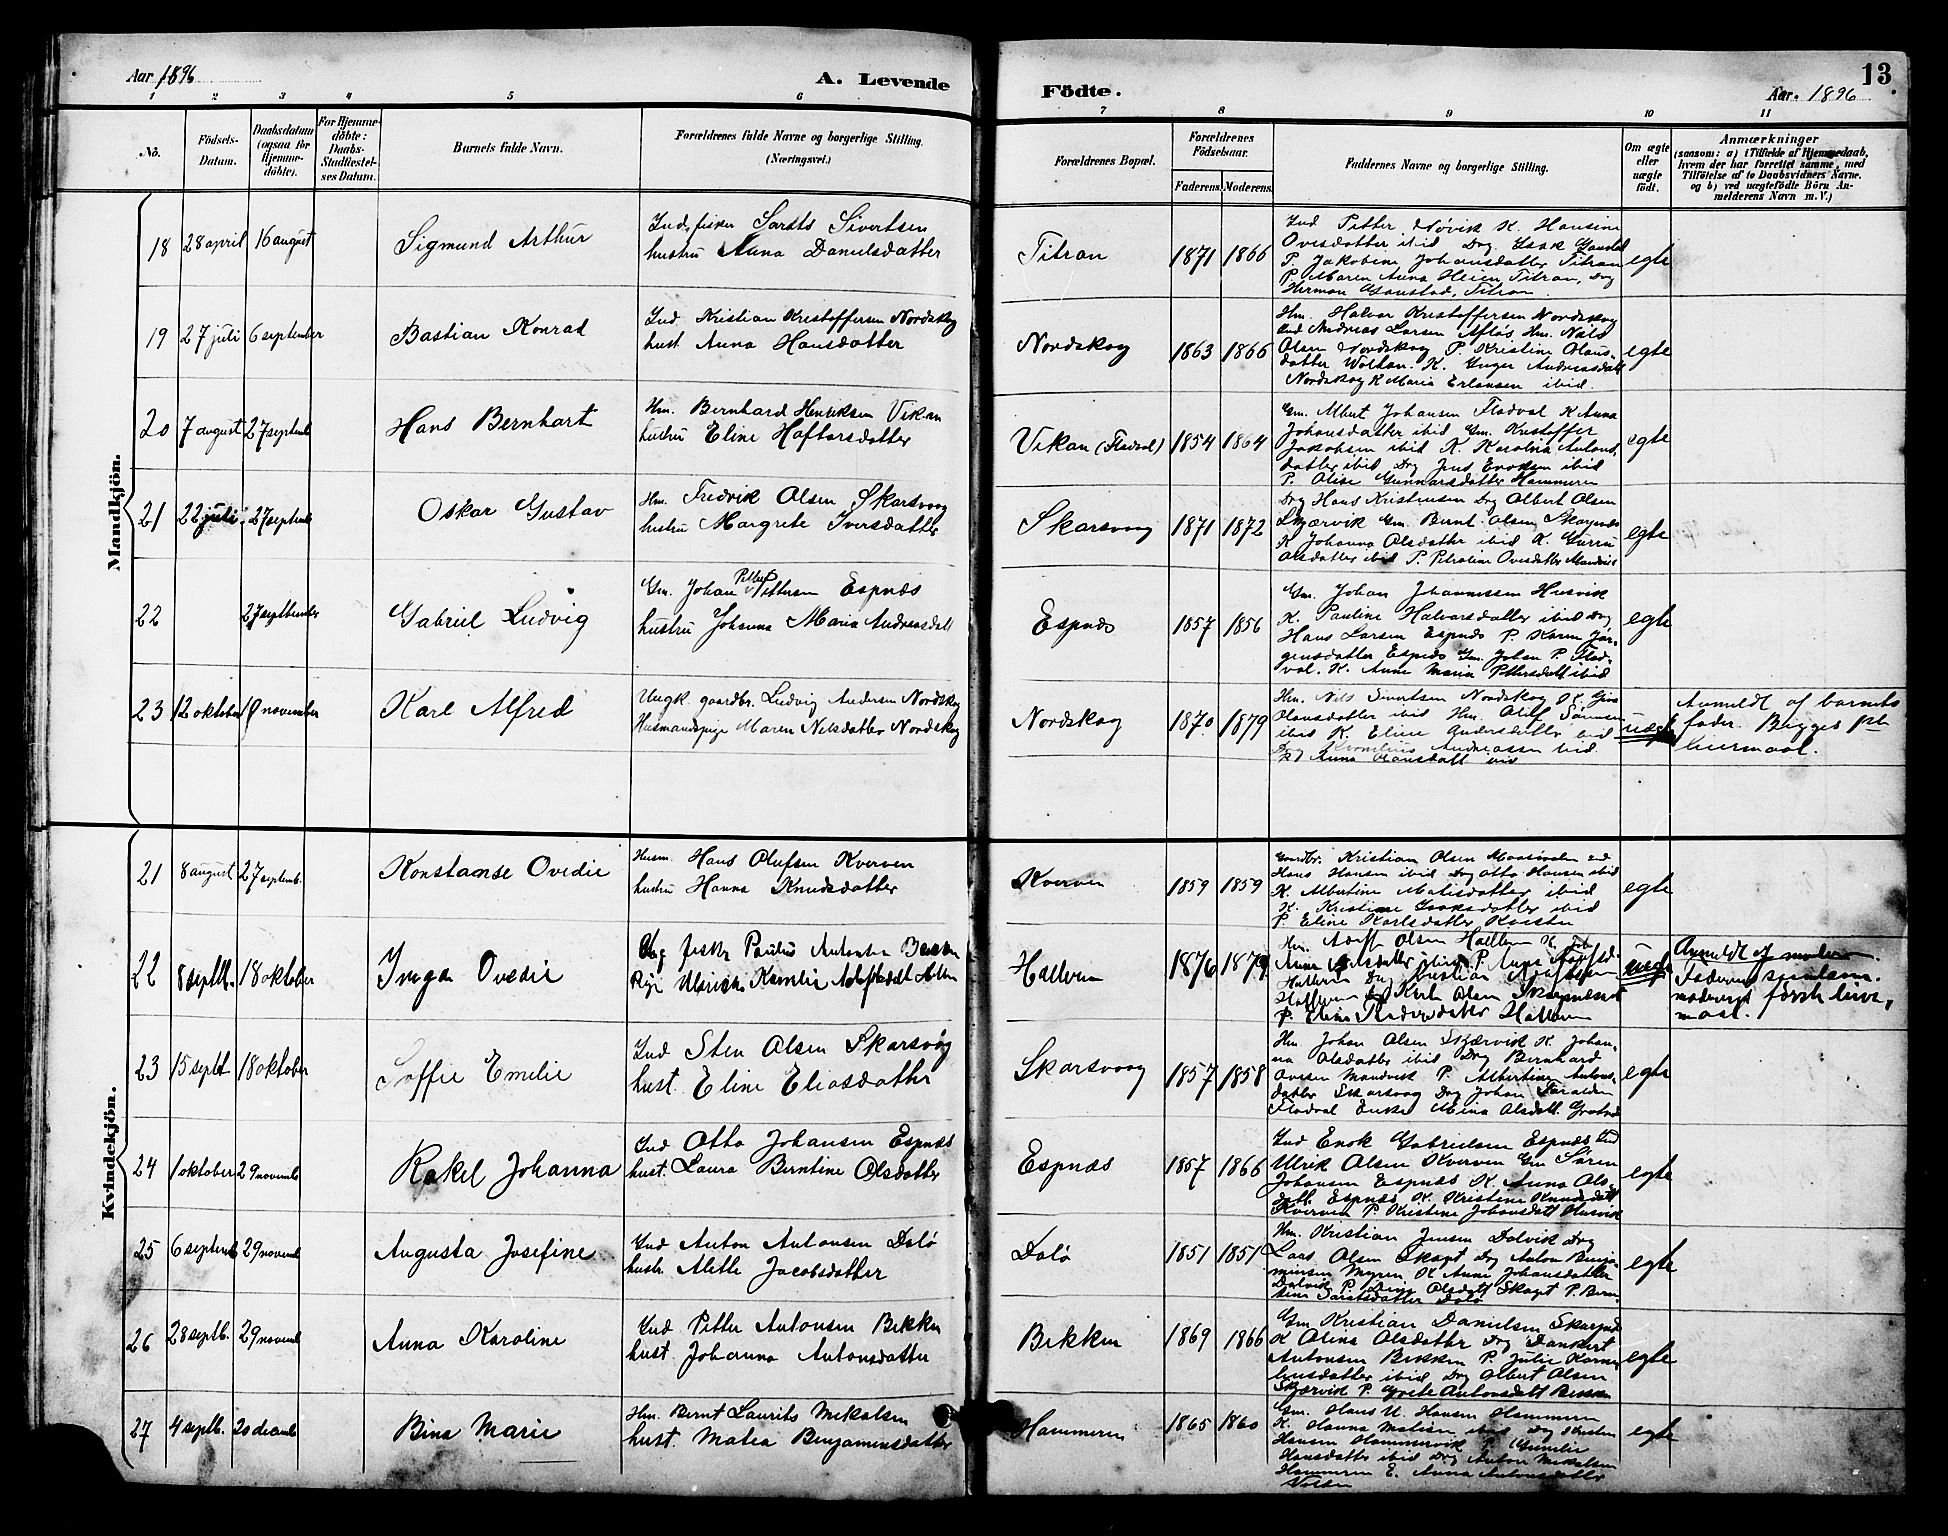 Aar 1896
A. Levende
Födte.
13
Aar. 1896
1 2 3 4 5 6 7 8 9 10 11
No.
Födsels-
Datum.
Daabsdatum
(ogsaa for
Hjemme-
döbte).
For Hjemme-
döbte:
Daabs-
Stadfæstel-
ses Datum.
Barnets fulde Navn.
Forældrenes fulde Navne og borgerlige Stilling.
(Næringsvei.)
Forældrenes Bopæl.
Forældrenes
Födselsaar.
Faderens.
Moderens.
Faddernes Navne og borgerlige Stilling.
Om ægte
eller
uægte
født.
Anmærkninger
(saasom: a) i Tilfælde af Hjemmedaab,
hvem der har forrettet samme, med
Tilföielse af to Daabsvidners Navne.
og b) ved uægtefödte Börn An-
melderens Navn m.V.)
Mandkjön.
18 28 april 16 august Sigmund Arthur
Ind, fisker Sivertsen
hustru Anna Danielsdatter
Titran 1871 1866
Ind Petter Novik K. Hansine
Ovesdatter ibid Drg. Isak
P. Jakobine Johansdatter Titran
P. Maren Anna Heien Titran, Drg
Herman Titran
egte
19 27 juli 6 september Bastian Konrad
Ind Kristian Kristoffersen Nordskog
hust Anna Hansdatter
Nordskog 1863 1866
Hm. Halvor Kristoffersen Nordskog
Ind Andreas Larsen Hm. Nils
Olsen Nordskog P. Kristine Olaus-
datter K. Inger Andreasdatt
Nordskog K Maria Erlansen ibid.
egte
20 7 august 27 septemb Hans Bernhart
Hm. Bernhard Henriksen Vikan
hustru Eline Haftorsdatter
Vikan (Fladval) 1854 1864
Gm. Albert Johansen Fladval K Anna
Johansdatter ibid Gm. Kristoffer
Jakobsen ibid K. Karolina Antons-
datter ibid Drg Jens ibid
P. Olise Gunnarsdatter Hammeren
egte
21 22 juli 27 septemb Oskar Gustav
Hm. Fredrik Olsen Skarsvog
hustru Margrete Iversdatter
Skarsvog 1871 1872
Drg Hans Kristensen Drg Albert Olsen
Skjærvik Gm. Bernt Olsen
K Johanna Olsdatter ibid K. Gurru
Olsdatter ibid P. Petroline Ovesdatter Mandvik
egte
22 27 septbember Gabriel Ludvig
Petter
Gm. Johan Pettersen Espnæs
hustru Johanna Maria Andreasdatt
Espnæs 1857 1856
Gm. Johan Johannessen Husvik
K. Pauline Halvorsdatter ibid Drg
Hans Larsen Espnæs P. Karen Jør-
gensdatter Espnæs Gm. Johan P. Flad-
val. K. Anne Maria Pettersdatt ibid
egte
23 12 oktober 1 november Karl Alfred
Ungk. gaardbr. Ludvig Andersen Nordskog
Husmandspige Maren Nilsdatter Nordskog
Nordskog 1870 1879
Hm. Nils Sivertsen Nordskog K.
Olausdatter ibid Hm. Oluf
ibid K. Eline Andersdatter ibid
Drg Kornelius Andreassen ibid
Anna Hansdatt ibid
uegte
Anmeldt af barnets
fader. Begges 1ste
leiermaal.
Kvindekjön.
21 8 august 27 septemb. Konstanse Ovedie
Husm. Hans Olufsen Kverven
hustru Hanna Knudsdatter
Kverven 1859 1859
Gaardbr. Kristian Olsen
Hans Hansen ibid Drg Otto Hansen ibid
K. Albertine Matisdatter ibid
K. Kristine Isaksdatter ibid
P Eline Karlsdatter
egte
22 8 septb. 18 oktober Inga Ovedie
Ung fisker Paulus Antonsen
Pige Ulrikke Kamilie
Hallven 1876 1879
Hm. Adolf Olsen Hallven K.
Anne Nilsdatter ibid P. Anne
Hallven Drg Kristian
Hallven Drg Karl Olsen
P. Eline Hallven
uegte
Anmeldt af moderen.
Faderens
moderens første leier-
maal.
23 15 septb 18 oktober Soffie Emilie
Ind Sten Olsen Skarsvog
hust. Eline Eliasdatter
Skarsvog 1857 1858
Hm Johan Olsen Skjærvik K. Johan-
na Olsdatter ibid Drg Bernhard
Ovesen Mandvik P. Albertine Antons-
datter Skarsvog Drg Johan
Fladval Enke Mina Olsdatt
egte
24 1 oktober 29 novemb Rakel Johanna
Ind Otto Johansen Espnæs
hust. Laura Berntine Olsdatter
Espnæs 1857 1866
Ind Enok Gabrielsen Espnæs Ind
Ulrik Olsen Kverven Gm Søren
Johansen Espnæs K. Anna Ols-
datt. Espnæs K. Kristine Knudsdatt
Kverven P. Kristine Johansdatt Husvik
egte
25 6 septemb 29 novemb Augusta Josefine
Ind Anton Antonsen Dolø
hustr. Alette Jacobsdatter
Dolø 1851 1851
Hm. Kristian Jensen Dolvik Drg
Lars Olsen Skagt Drg Anton Benja-
minsen Myren K Anne Johansdatter
Dolvik P. Olsdatt Skagt P. Bern-
tine Dolø
egte
26 28 septb. 29 novemb Anna Karoline
Ind Petter Antonsen Bekken
hust. Johanna Antonsdatter
Bekken 1869 1866
Gm Kristian Danielsen
K Olina Olsdatter Drg Dankert
Antonsen Bekken P. Julie Korne-
liusdatter ibid Drg Albert Olsen
Skjærvik P. Grete Antonsdatt Bekken
egte
27 4 septb. 20 decemb Bina Marie
Hm. Bernt Laurits Mikalsen
hust. Matea Benjaminsdatter
Hammeren 1865 1860
Gm. Hans U. Hansen Hammeren
K. Hanna Matisen ibid Drg
Hansen Hammervik P.
Hansdatter ibid Drg Anton Mikalsen
Hammeren E. Anna Antonsdatter
egte